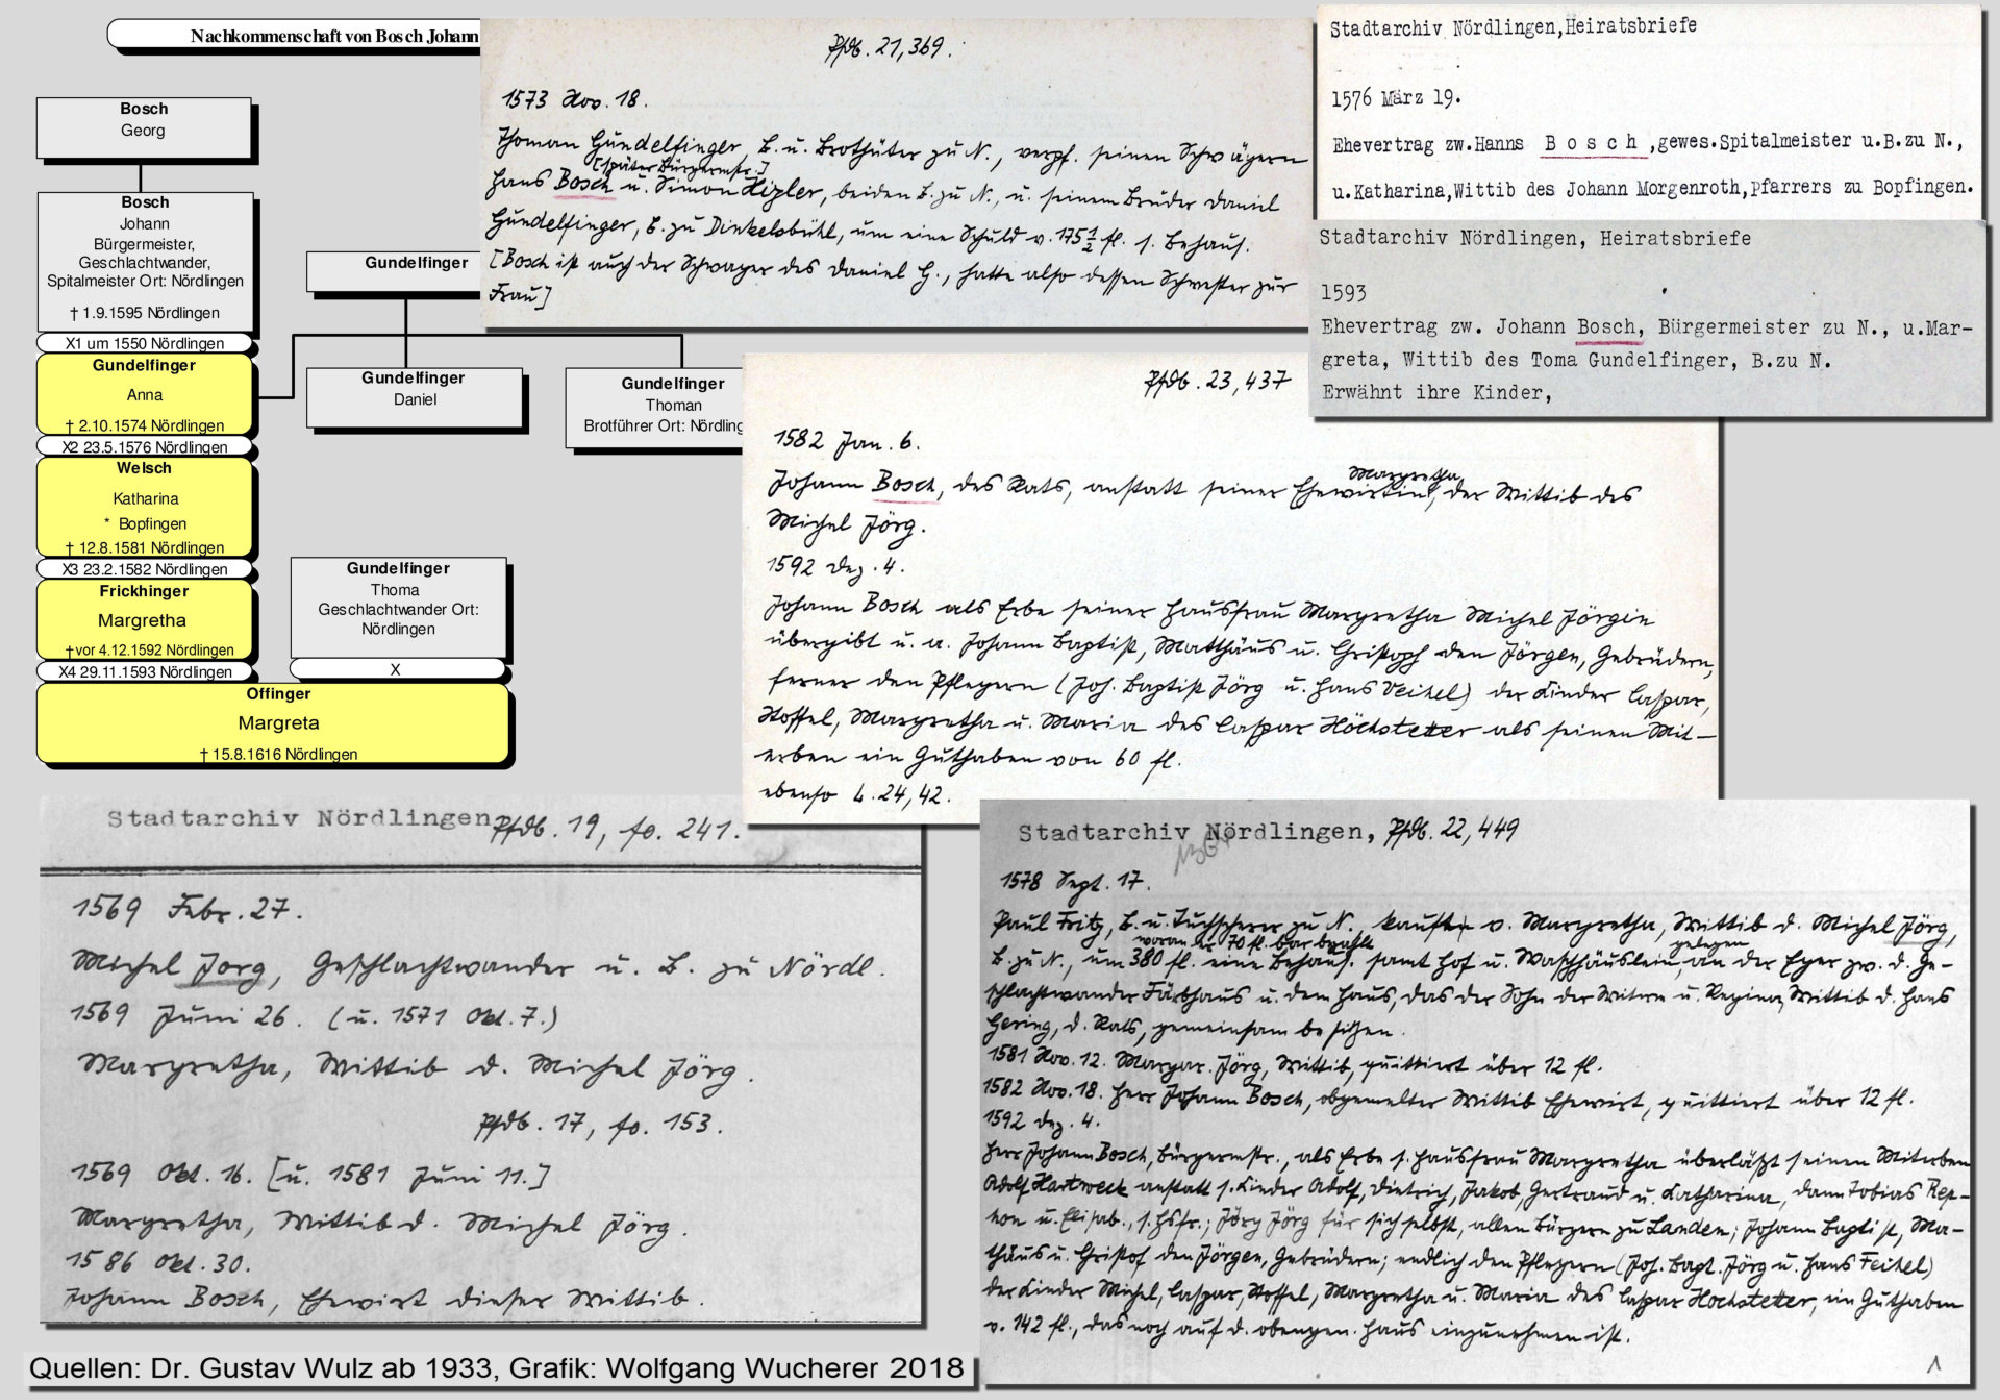 Nachkommenschaft von Bosch Johann
Bosch
Georg
Bosch
Johann
Bürgermeister,
Geschlachtwander,
Spitalmeister Ort: Nördlingen
† 1.9.1595 Nördlingen
X1 um 1550 Nördlingen
Gundelfinger
Anna
† 2.10.1574 Nördlingen
X2 23.5.1576 Nördlingen
Welsch
Katharina
* Bopfingen
† 12.8.1581 Nördlingen
X3 23.2.1582 Nördlingen
Frickhinger
Margretha
†vor 4.12.1592 Nördlingen
X4 29.11.1593 Nördlingen
Offinger
Margreta
† 15.8.1616 Nördlingen
Gundelfinger
Gundelfinger
Daniel
Gundelfinger
Thoman
Brotführer Ort: Nördling
Gundelfinger
Thoma
Geschlachtwander Ort:
Nördlingen
X
Pfdb. 21,369.
1573 Nov. 18.
Thoman Gundelfinger, B. u. Brothüter zu N., verpf. seinen Schwägern
[später Bürgermstr.]
Hans Bosch u. Simon Hizler, beiden B. zu N., u. seinem Bruder Daniel
Gundelfinger, B. zu Dinkelsbühl, um eine Schuld v. 175 ½ fl. s. Behaus.
[Bosch ist auch der Schwager des Daniel G., hatte also dessen Schwester zur
Frau]
Stadtarchiv Nördlingen,Heiratsbriefe
1576 März 19.
Ehevertrag zw.Hanns B o s c h ,gewes.Spitalmeister u.B.zu N.,
u.Katharina,Wittib des Johann Morgenroth,Pfarrers zu Bopfingen.
Stadtarchiv Nördlingen, Heiratsbriefe
1593
Ehevertrag zw. Johann Bosch, Bürgermeister zu N., u.Mar-
greta, Wittib des Toma Gundelfinger, B.zu N.
Erwähnt ihre Kinder,
Pfdb. 23,437
1582 Jan. 6.
Margretha
Johann Bosch, des Rats, anstatt seiner Ehewirtin, der Wittib des
Michel Jörg.
1592 Dez. 4.
Johann Bosch als Erbe seiner Hausfrau Margretha Michel Jörgin
übergibt u. a. Johann Baptist, Matthäus u. Christoph den Jörgen, Gebrüdern,
ferner den Pflegern (Joh. Baptist Jörg u. Hans Veihel) der Kinder Caspar,
Stoffel, Margretha u. Maria des Caspar Höchsteter als seinen Mit-
erben ein Guthaben von 60 fl.
ebenso b. 24,42.
Stadtarchiv Nördlingen Pfdb. 19, fo. 241.
1569 Febr. 27.
Michel Jorg, Geschlachtwander u. B. zu Nördl.
1569 Juni 26. (u. 1571 Okt. 7.)
Margretha, Wittib d. Michel Jörg.
Pfdb. 17, fo. 153.
1569 Okt. 16. [u. 1581 Juni 11.]
Margretha, Wittib d. Michel Jörg.
1586 Okt. 30.
Johann Bosch, Ehewirt dieser Wittib.
Stadtarchiv Nördlingen, Pfdb. 22,449
1578 Sept. 17.
Paul Fritz, B. u. Tuchscherer zu N. kauft v. Margretha, Wittib d. Michel Jörg,
woran er 70 fl. bar bezahlt gelegen
B. zu N., um 380 fl. eine Behaus. samt Hof u. Waschhäuslein, an der Eger zw. d. Ge-
schlachtwander Färbhaus u. dem Haus, das der Sohn der Witwe u. Regina, Wittib d. Hans
Gering, d. Rats, gemeinsam besitzen.
1581 Nov. 12. Margar. Jörg, Wittib, quittiert über 12 fl.
1582 Nov. 18. Herr Johann Bosch, obgemelter Wittib Ehewirt, quittiert über 12 fl.
1592 Dez. 4.
Herr Johann Bosch, Bürgermstr., als Erbe s. Hausfrau Margretha überläßt seinen Miterben
Adolf Hartweck anstatt s. Kinder Adolf, Dietrich, Jakob, Gertraud u. Katharina, dann Tobias Rep-
hon u. Elisab., s. Hsfr.; Jörg Jörg für sich selbst, allen Bürgern zu Landen; Johann Baptist, Ma-
thäus u. Christof den Jörgen, Gebrüdern; endlich den Pflegern (Joh. Bapt. Jörg u. Hans Feihel)
der Kinder Michel, Caspar, Stoffel, Margretha u. Maria des Caspar Hochsteter, ein Guthaben
v. 142 fl., das noch auf d. obengen. Haus einzunehmen ist.
Quellen: Dr. Gustav Wulz ab 1933, Grafik: Wolfgang Wucherer 2018